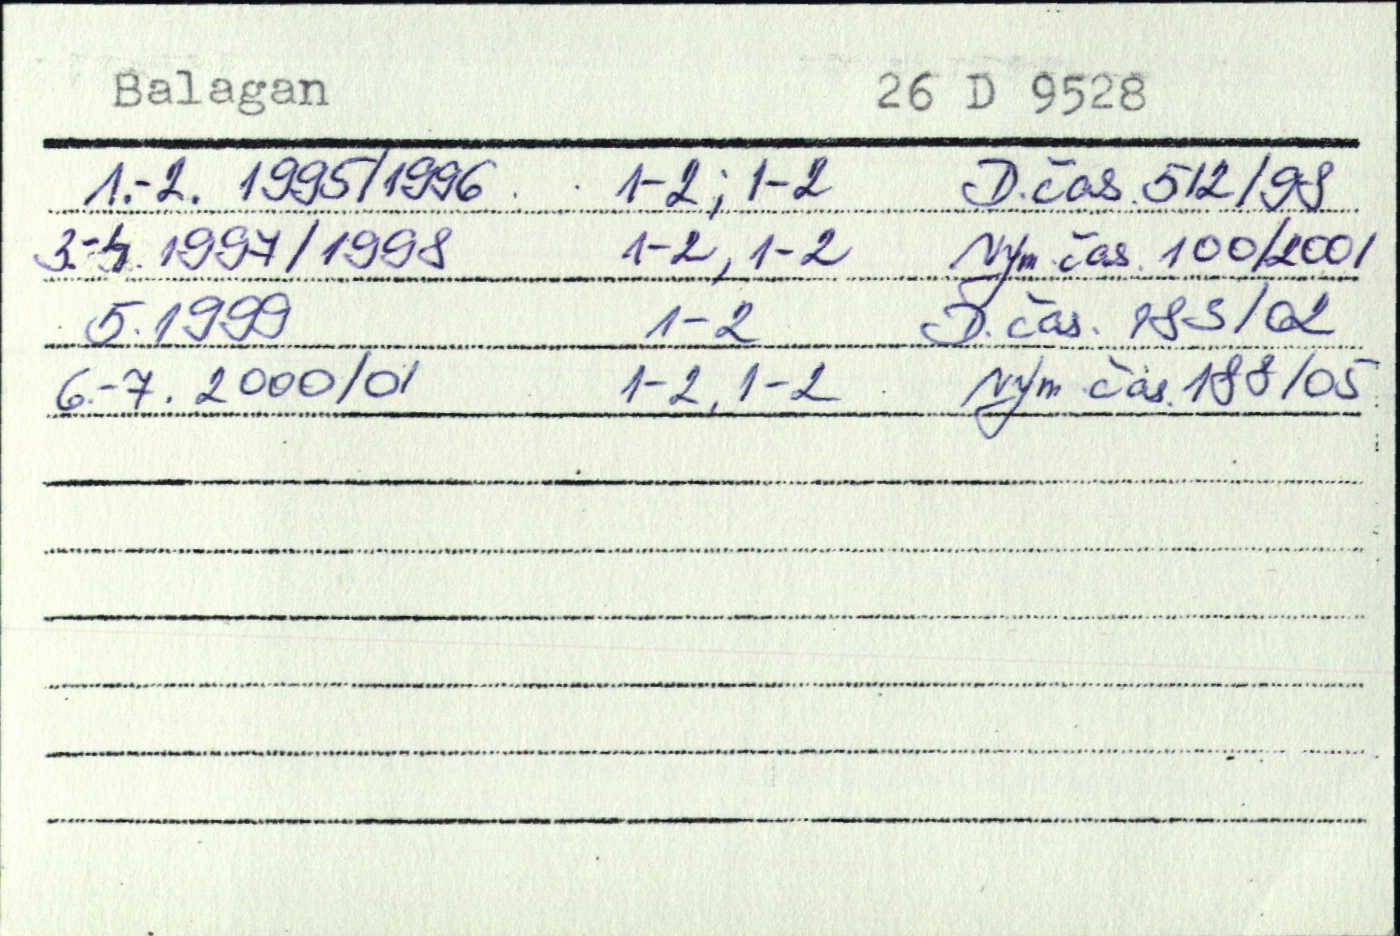 Balagan 26 D 9528
1.-2. 1995/1996 1-2; 1-2 D. čas. 512/98
3.-4. 1997/1998 1-2, 1-2 Nym čas. 100/2001
5. 1999 1-2 D. čas. /02
6.-7. 2000/01 1-2, 1-2 Nym čas. 188/05